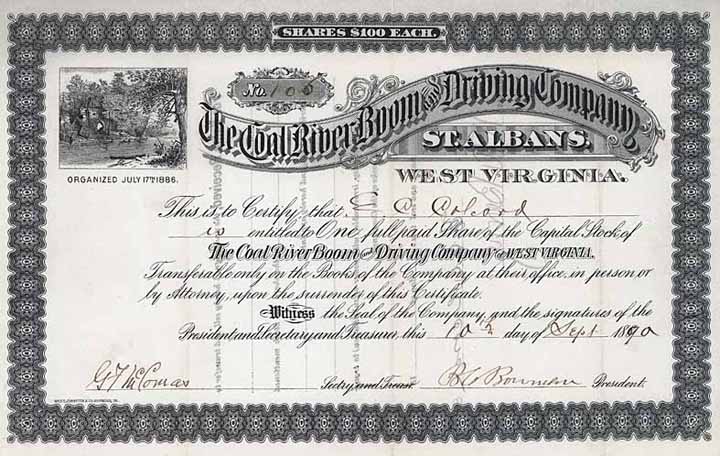 SHARES $100 EACH.
No. 105
The Coal River Boom and Driving Company,
ST. ALBANS,
WEST VIRGINIA.
ORGANIZED JULY 17TH 1886.
This is to Certify that C Colcord
is entitled to One full paid Share of the Capital Stock of
The Coal River Boom and Driving Company of WEST VIRGINIA.
Transferable only on the Books of the Company at their office, in person or
by Attorney, upon the surrender of this Certificate.
Witness the Seal of the Company, and the signatures of the
President, and Secretary and Treasurer, this 10 day of Sept 1890
G T McComas Sect'y and Treas'r. Bowman President.